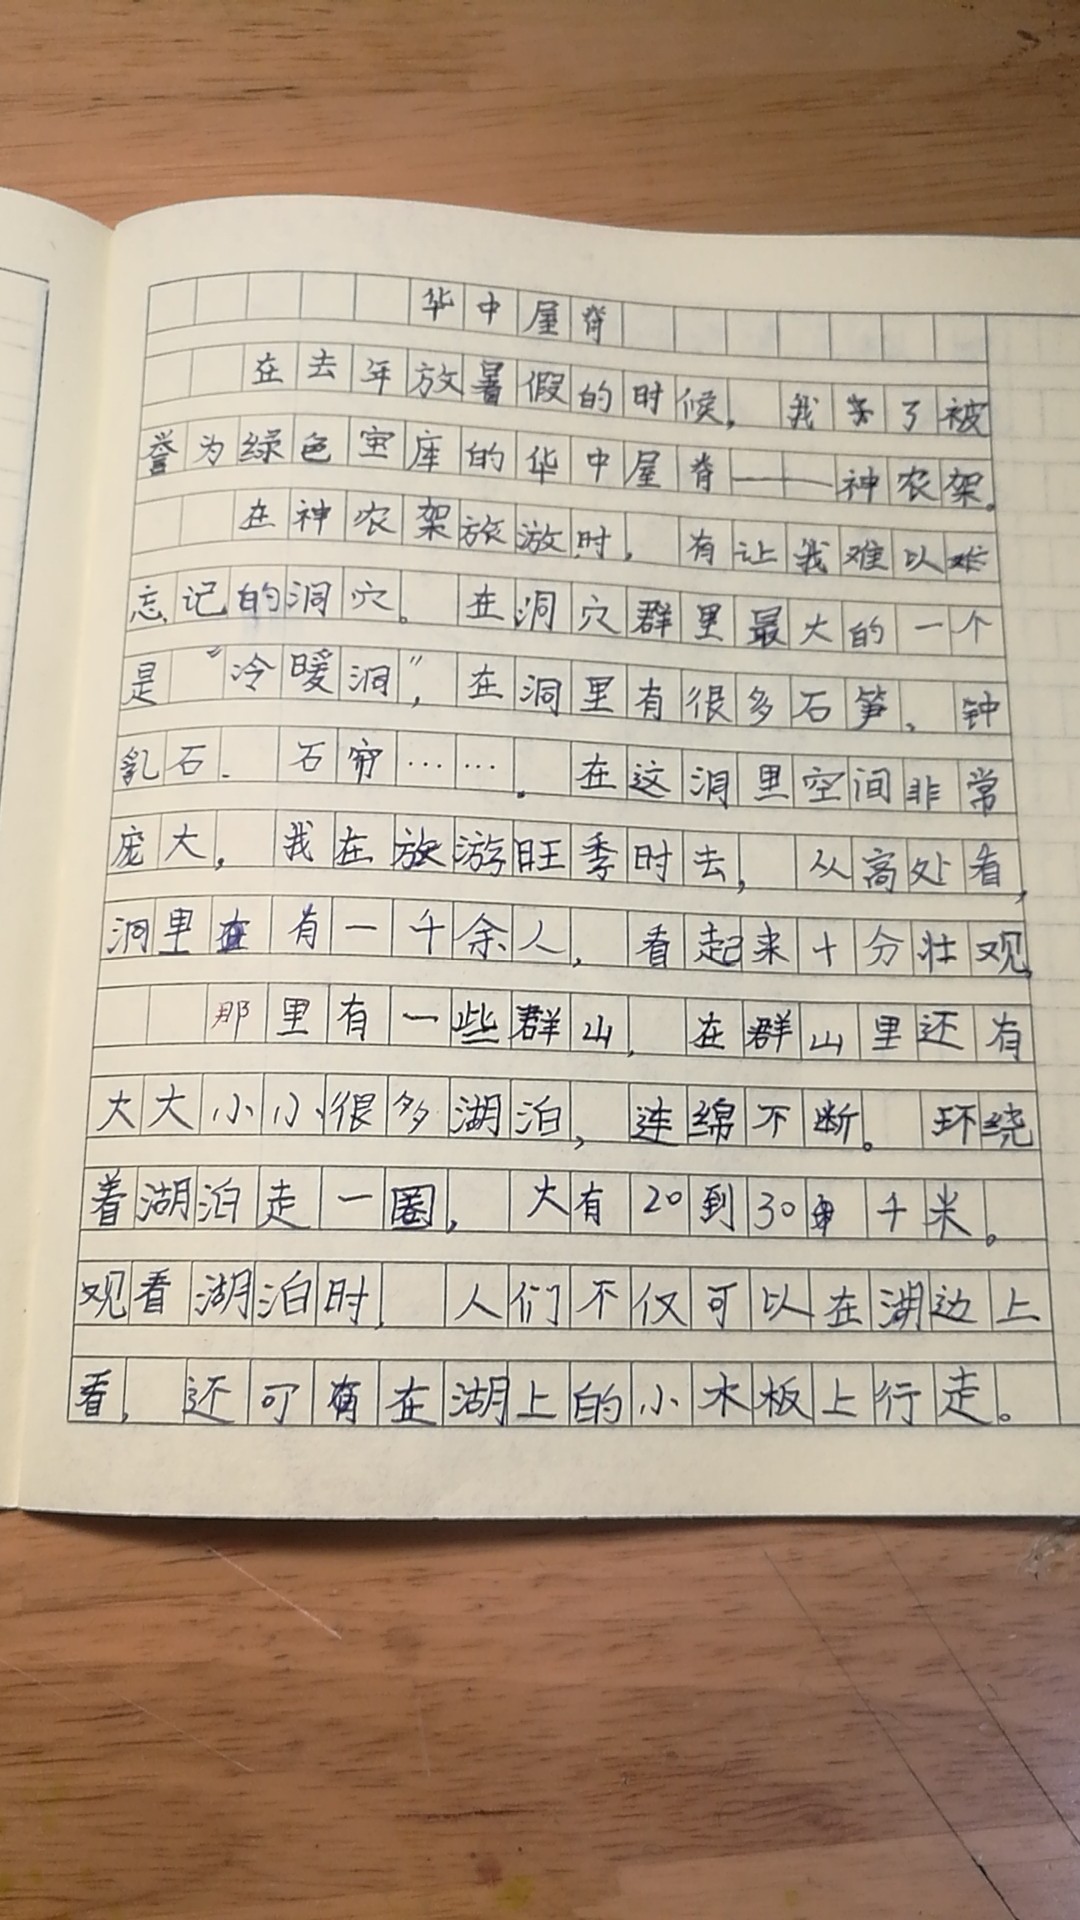 华中屋脊
在去年放暑假的时候，我来了被
誉为绿色宝库的华中屋脊——神农架。
在神农架旅游时，有让我难以
忘记的洞穴。在洞穴群里最大的一个
是“冷暖洞”，在洞里有很多石笋、钟
乳石、石帘……。在这洞里空间非常
庞大，我在旅游旺季时去，从高处看，
洞里在有一千余人，看起来十分壮观，
那里有一些群山，在群山里还有
大大小小很多湖泊，连绵不断。环绕
着湖泊走一圈，大有20到30千米。
观看湖泊时，人们不仅可以在湖边上
看，还可有在湖上的小木板上行走。